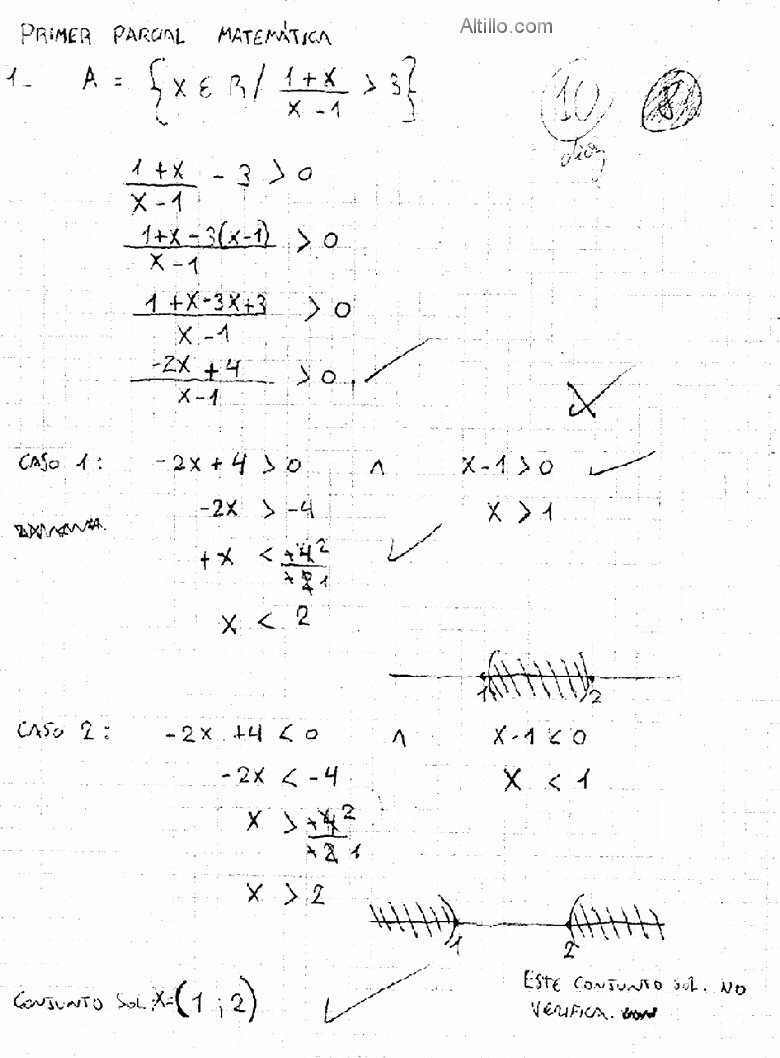 Altillo.com
PRIMER PARCIAL MATEMÁTICA
1- A = { x ε R / (1+x)/(x-1) > 3 }
10
8
Diez
(1+x)/(x-1) - 3 > 0
(1+x-3(x-1))/(x-1) > 0
(1+x-3x+3)/(x-1) > 0
(-2x+4)/(x-1) > 0
CASO 1: -2x+4 > 0 ∧ x-1 > 0
-2x > -4 x > 1
+x < +4/+2 2 1
x < 2
1 2
CASO 2: -2x+4 < 0 ∧ x-1 < 0
-2x < -4 x < 1
x > +4/+2 2 1
x > 2
1 2
CONJUNTO SOL: x=(1;2)
ESTE CONJUNTO SOL. NO
VERIFICA.